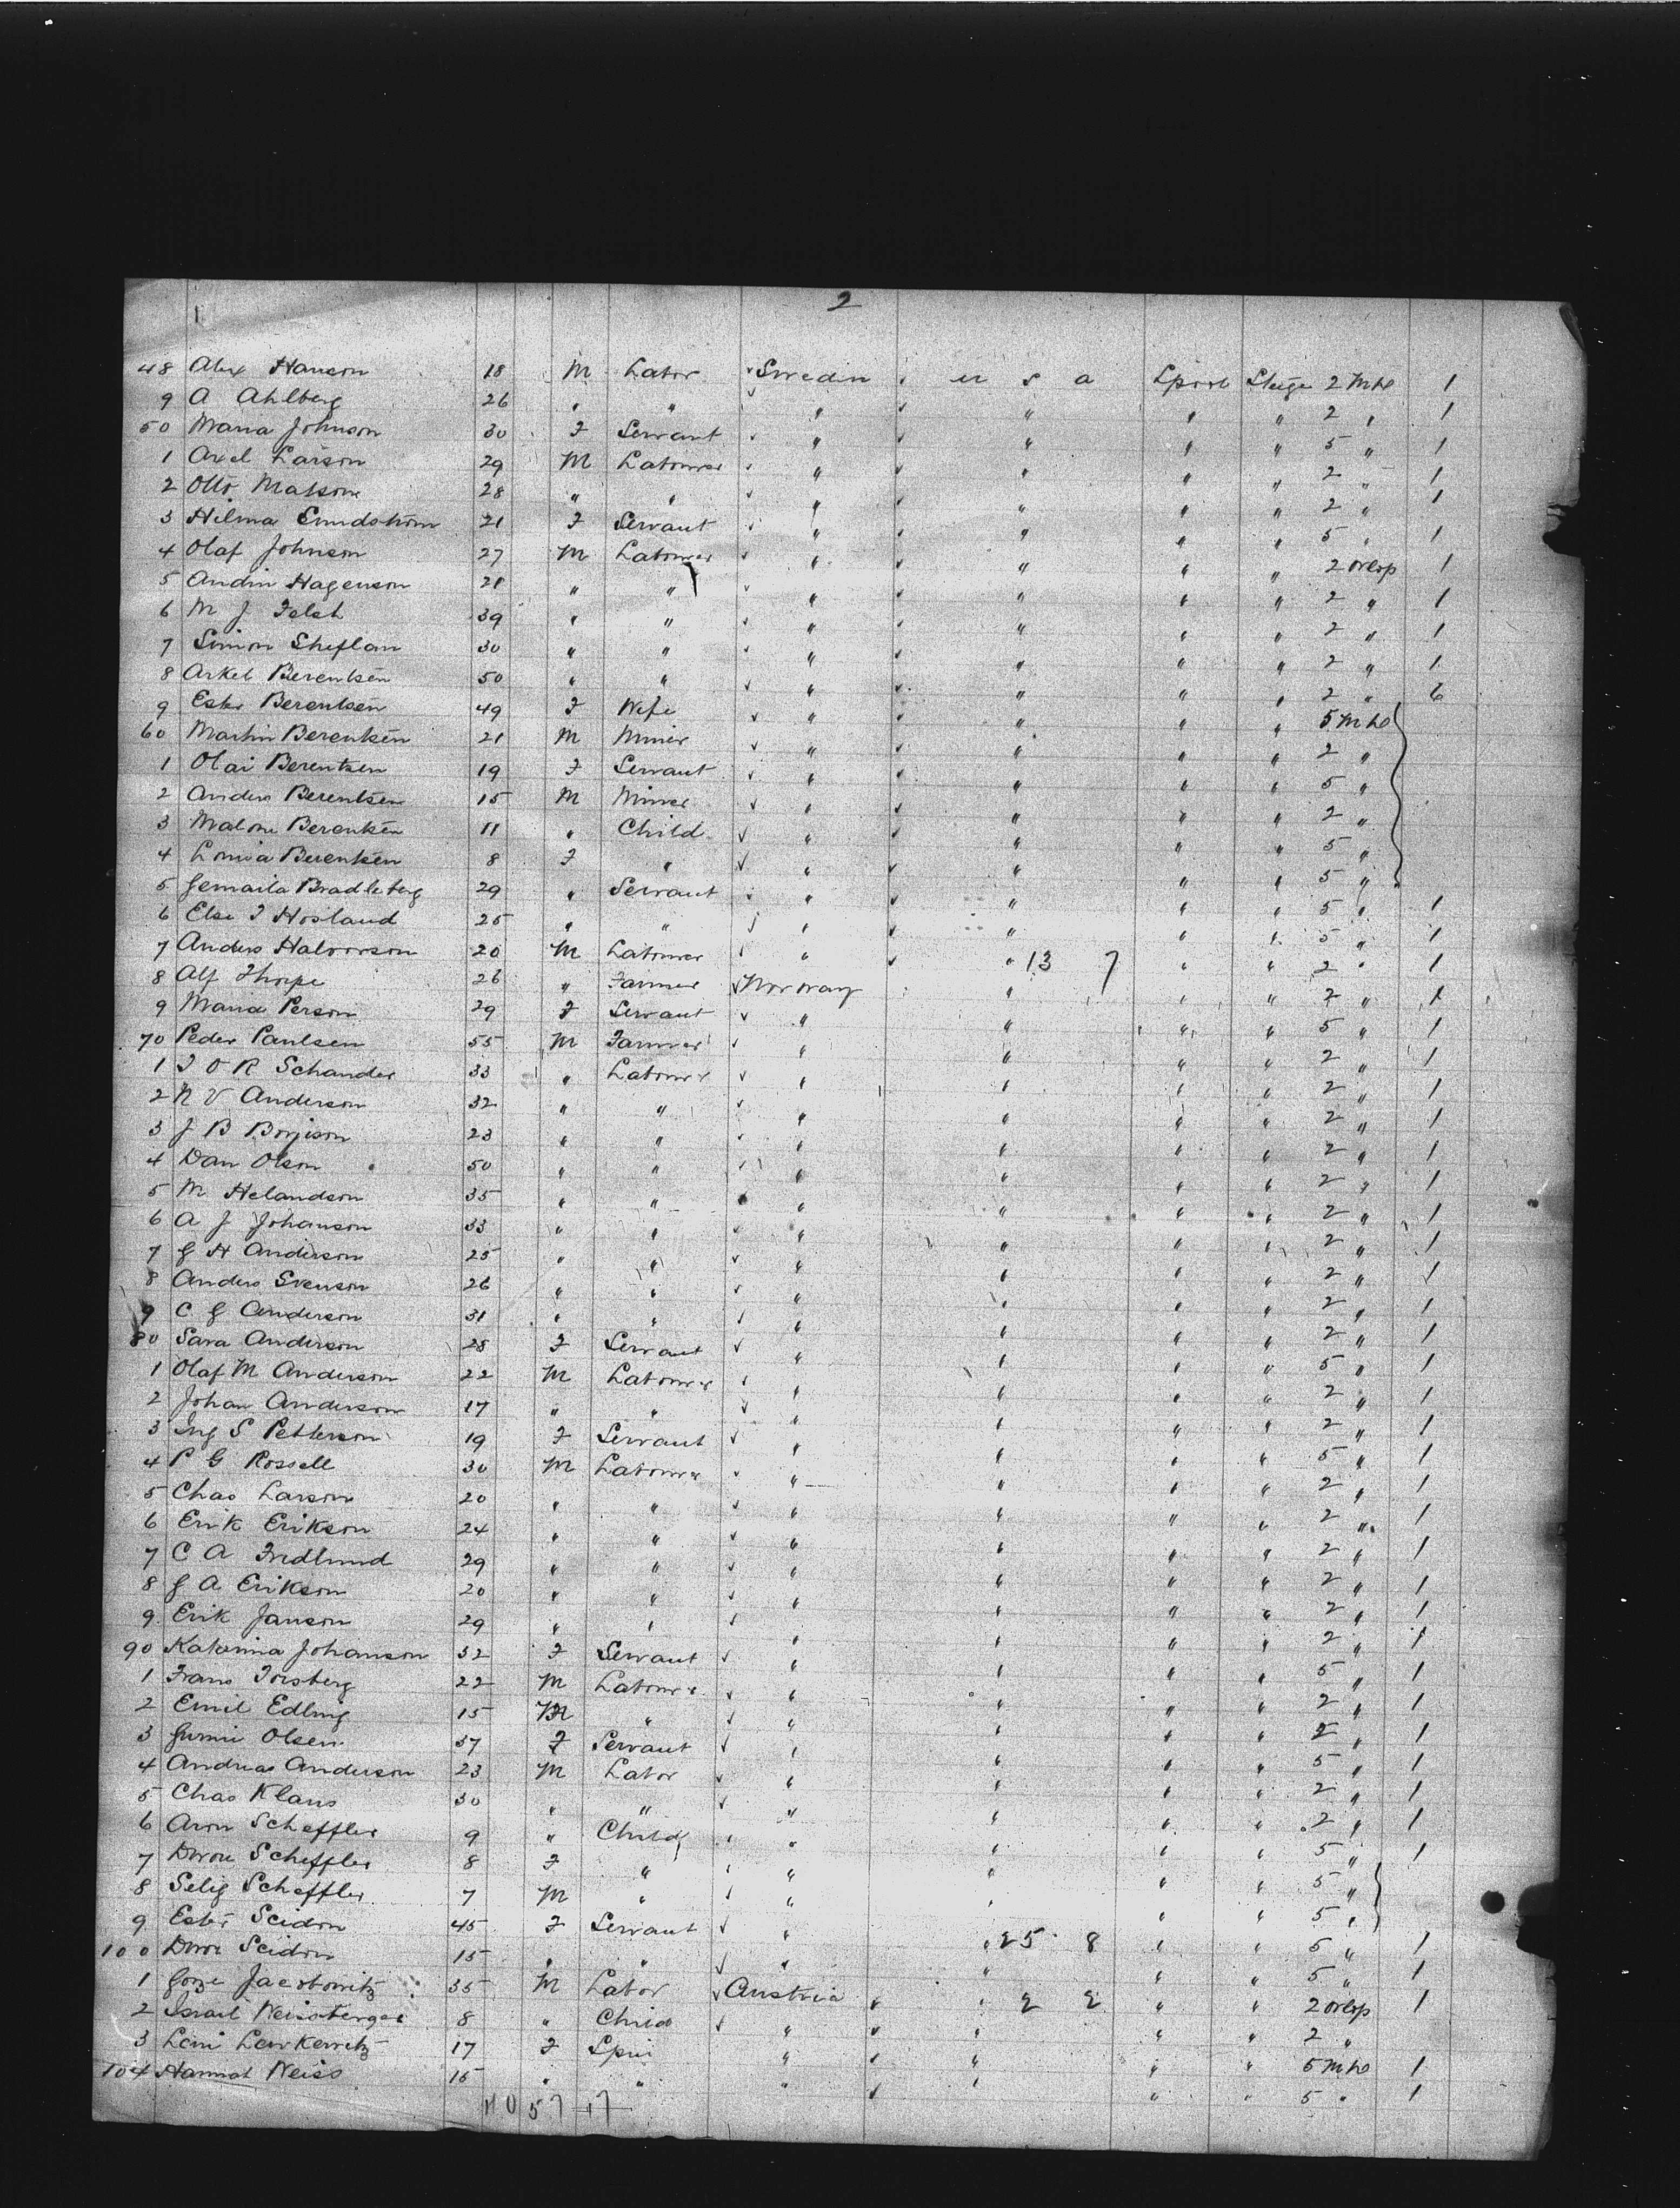 2
48 Alex Hanson 18 M Labor Sweden U S A Lpool Stege 2 Mhd 1
9 A Ahlberg 26 " " " " " " 2 " 1
50 Maria Johnson 30 F Servant " " " " 5 " 1
1 Axel Larson 29 M Labourer " " " " 2 " 1
2 Otto Matson 28 " " " " " " 2 " 1
3 Hilma 21 F Servant " " " " 5 " 1
4 Olaf Johnson 27 M Labourer " " " " 2 orlop 1
5 Hagenson 21 " " " " " " 2 " 1
6 M J 39 " " " " " " 2 " 1
7 Simon Sheflan 30 " " " " " " 2 " 1
8 Arket Berentsen 50 " " " " " " 2 " 6
9 Ester Berentsen 49 F Wife " " " " 5 Mhd
60 Martin Berentsen 21 M Miner " " " " 2 "
1 Olai Berentsen 19 F Servant " " " " 5 "
2 Anders Berentsen 15 M Miner " " " " 2 "
3 Berentsen 11 " Child " " " " 5 "
4 Berentsen 8 F " " " " " 5 "
5 29 " Servant " " " " 5 " 1
6 Else T Hosland 25 " " " " " " 5 " 1
7 Anders Halvorson 20 M Labourer " " 13 7 " " 2 " 1
8 Alf Thorpe 26 " Farmer Norway " " " 2 " 1
9 Maria Person 29 F Servant " " " " 5 " 1
70 Peder Paulsen 55 M Farmer " " " " 2 " 1
1 J O R Schander 33 " Labourer " " " " 2 " 1
2 N V Anderson 32 " " " " " " 2 " 1
3 J B 23 " " " " " " 2 " 1
4 Dan Olson 50 " " " " " " 2 " 1
5 M Helandson 35 " " " " " " 2 " 1
6 A J Johanson 33 " " " " " " 2 " 1
7 G H Anderson 25 " " " " " " 2 " 1
8 Anders Svenson 26 " " " " " " 2 " 1
9 C G Anderson 31 " " " " " " 2 " 1
80 Sara Anderson 28 F Servant " " " " 5 " 1
1 Olaf M Anderson 22 M Labourer " " " " 2 " 1
2 Johan Anderson 17 " " " " " " 2 " 1
3 Ing S Petterson 19 F Servant " " " " 5 " 1
4 P G Rossell 30 M Labourer " " " " 2 " 1
5 Chas Larson 20 " " " " " " 2 " 1
6 Erik Erikson 24 " " " " " " 2 " 1
7 C A Fredlund 29 " " " " " " 2 " 1
8 G A Erikson 20 " " " " " " 2 " 1
9 Erik Janson 29 " " " " " " 2 " 1
90 Katarina Johanson 32 F Servant " " " " 5 " 1
1 Frans Forsberg 22 M Labourer " " " " 2 " 1
2 Emil Edling 15 M " " " " " 2 " 1
3 Olsen 37 F Servant " " " " 5 " 1
4 Andreas Anderson 23 M Labor " " " " 2 " 1
5 Chas Klaus 30 " " " " " " 2 " 1
6 Aron Scheffler 9 " Child " " " " 5 " 1
7 Scheffler 8 F " " " " " 5 "
8 Selig Scheffler 7 M " " " " " 5 "
9 Ester Seidon 45 F Servant " " 25 8 " " 5 " 1
100 Seidon 15 " " " " " " 5 " 1
1 Jacobowitz 35 M Labor Austria " 2 2 " " 2 orlop 1
2 Israel Weissberger 8 " Child " " " " 2 "
3 Leni Lewkowitz 17 F Spin " " " " 5 Mhd 1
104 Hannah Weiss 15 " " " " " " 5 " 1